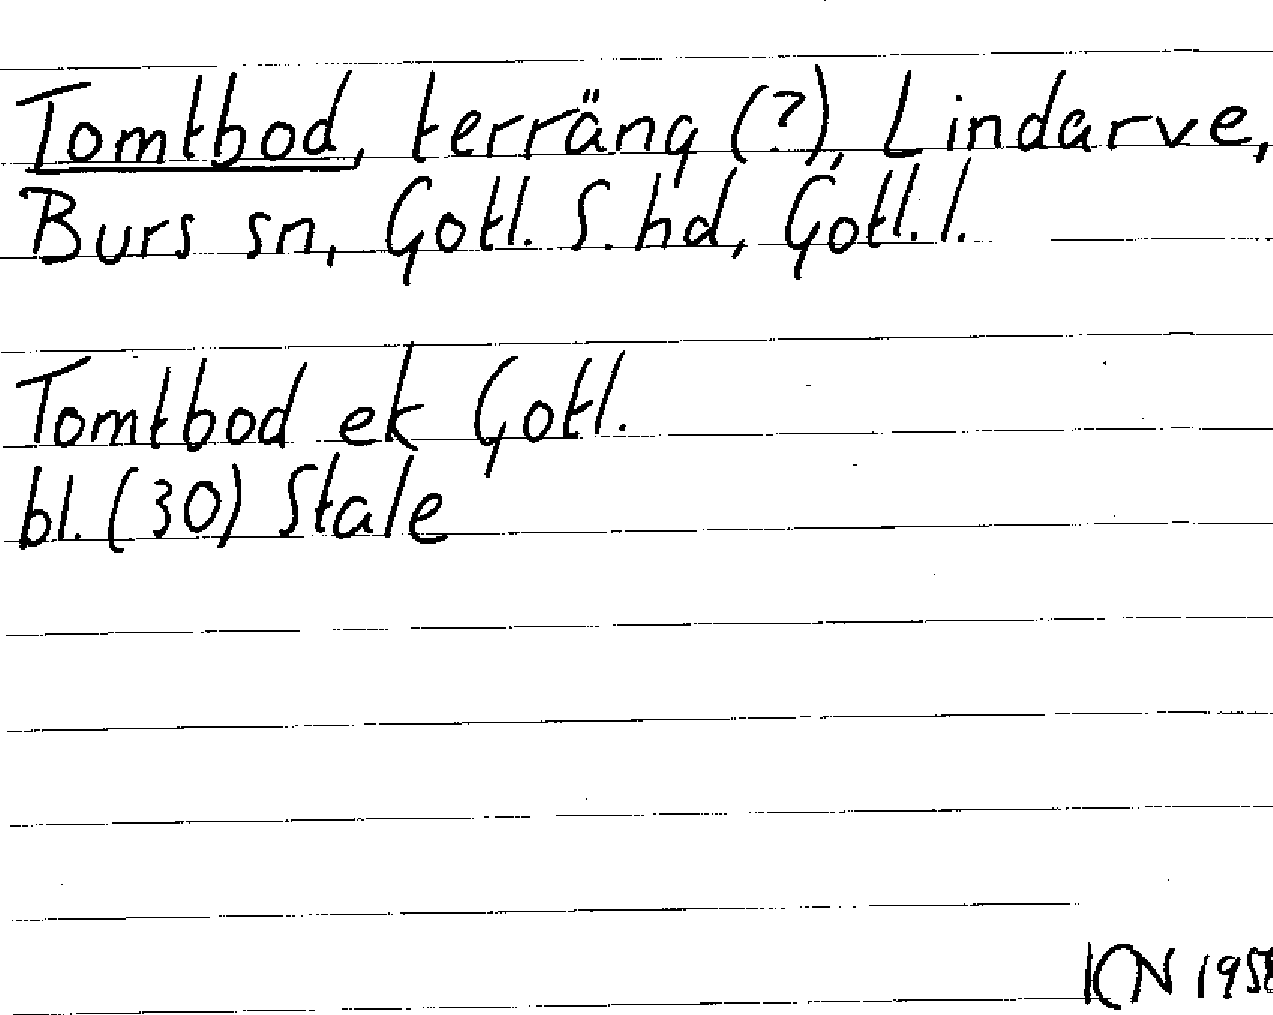 Tomtbod, terräng (?), Lindarve,
Burs sn, Gotl. S. hd, Gotl. l.
Tomtbod ek Gotl.
bl. (30) Stale